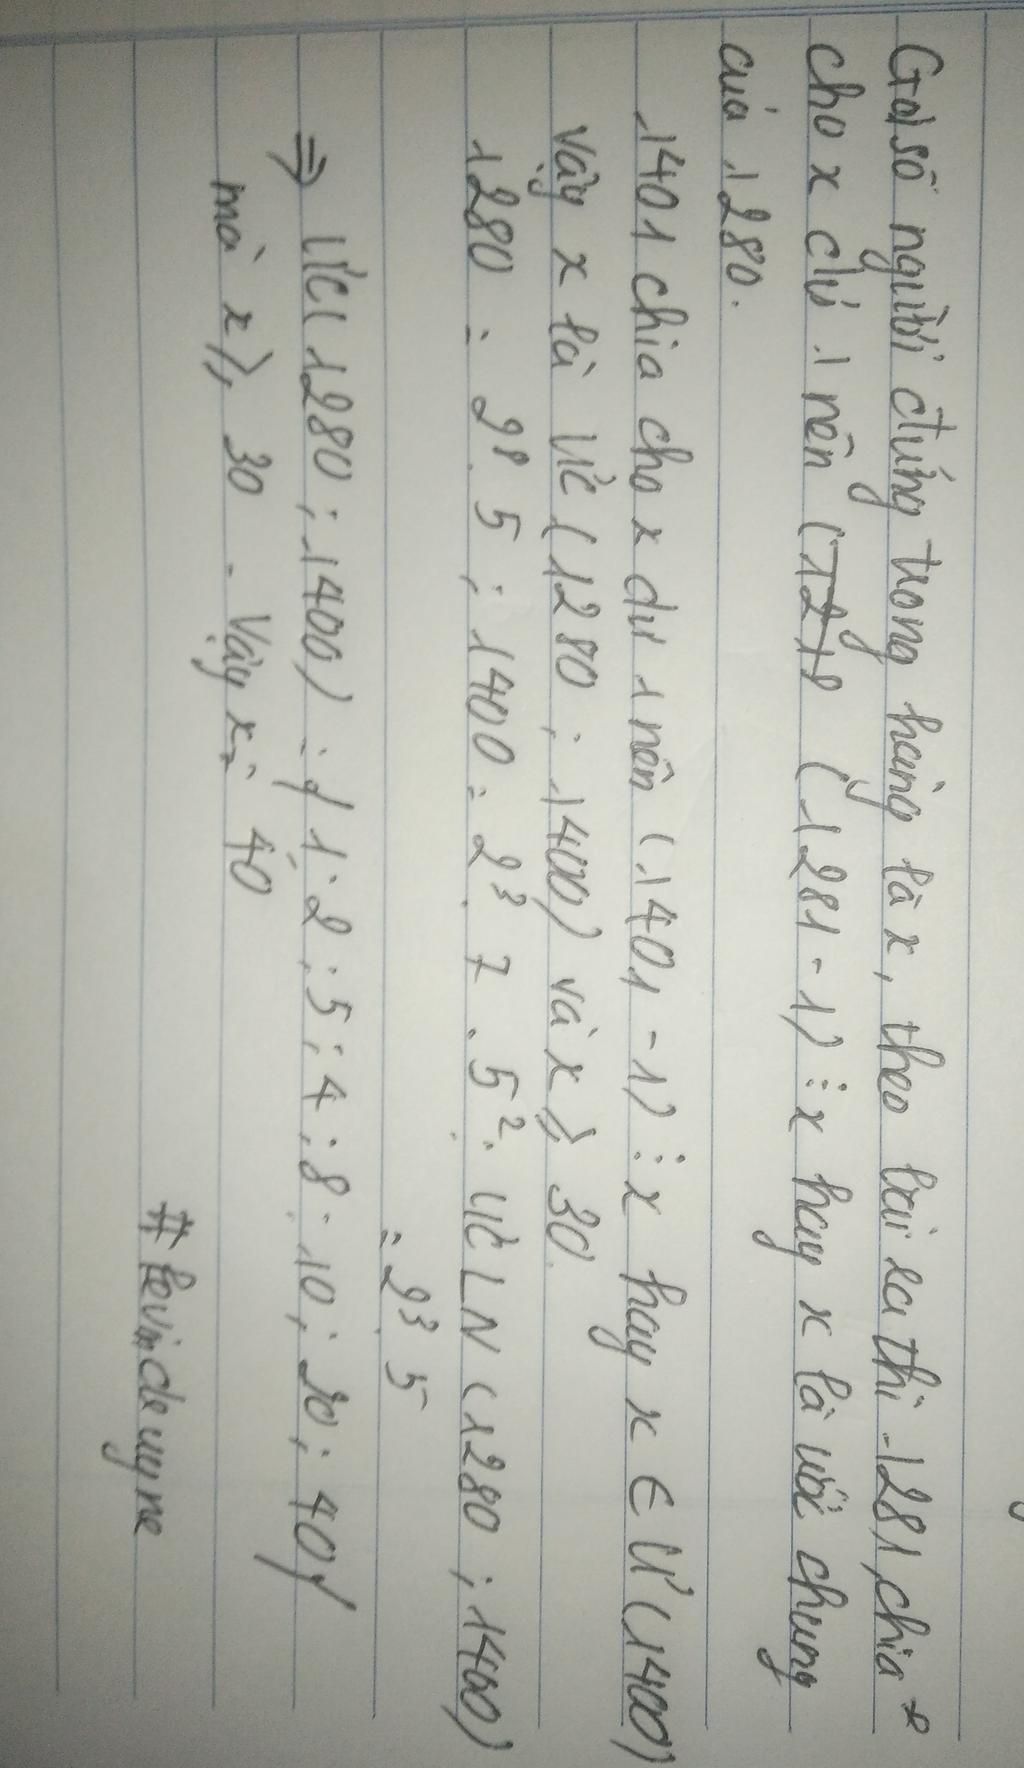 Gọi số người đứng trong hàng là x, theo bài ra thì 1281 chia
cho x dư 1 nên (1281 - 1) ⋮ x hay x là ước chung
của 1280.
1401 chia cho x dư 1 nên (1401 - 1) ⋮ x hay x ∈ Ư(1400)
Vậy x là ƯC (1280 ; 1400) và x ≥ 30.
1280 = 2⁸.5 ; 1400 = 2³.7.5². ƯCLN (1280 ; 1400)
= 2³.5
⇒ ƯC(1280 ; 1400) = {1; 2; 5; 4; 8; 10; 20; 40}
mà x ≥ 30. Vậy x = 40